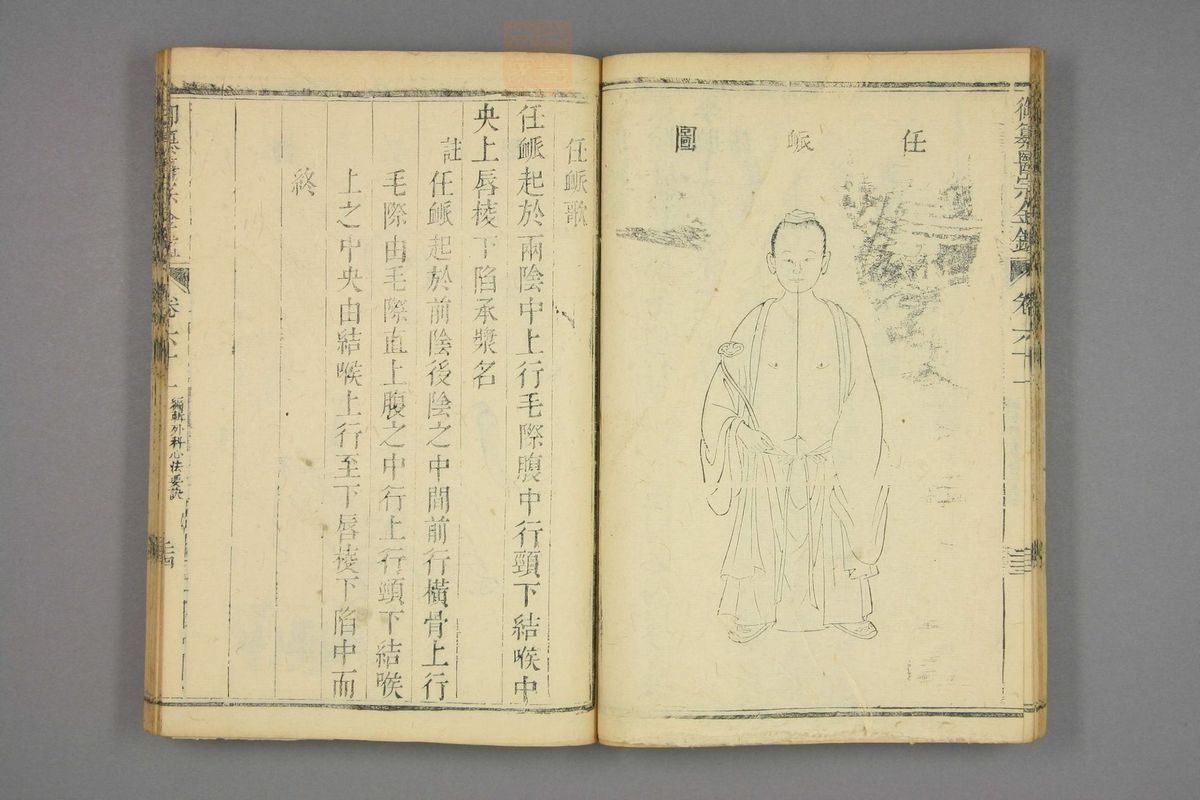 任衇圖
御纂醫宗金鑑 卷六十一
任衇歌
任衇起於兩陰中上行毛際腹中行頸下結喉中
央上唇棱下陷承漿名
註任衇起於前陰後陰之中間前行橫骨上行
毛際由毛際直上腹之中行上行頸下結喉
上之中央由結喉上行至下唇棱下陷中而
終
卷六十一 編輯外科心法要訣